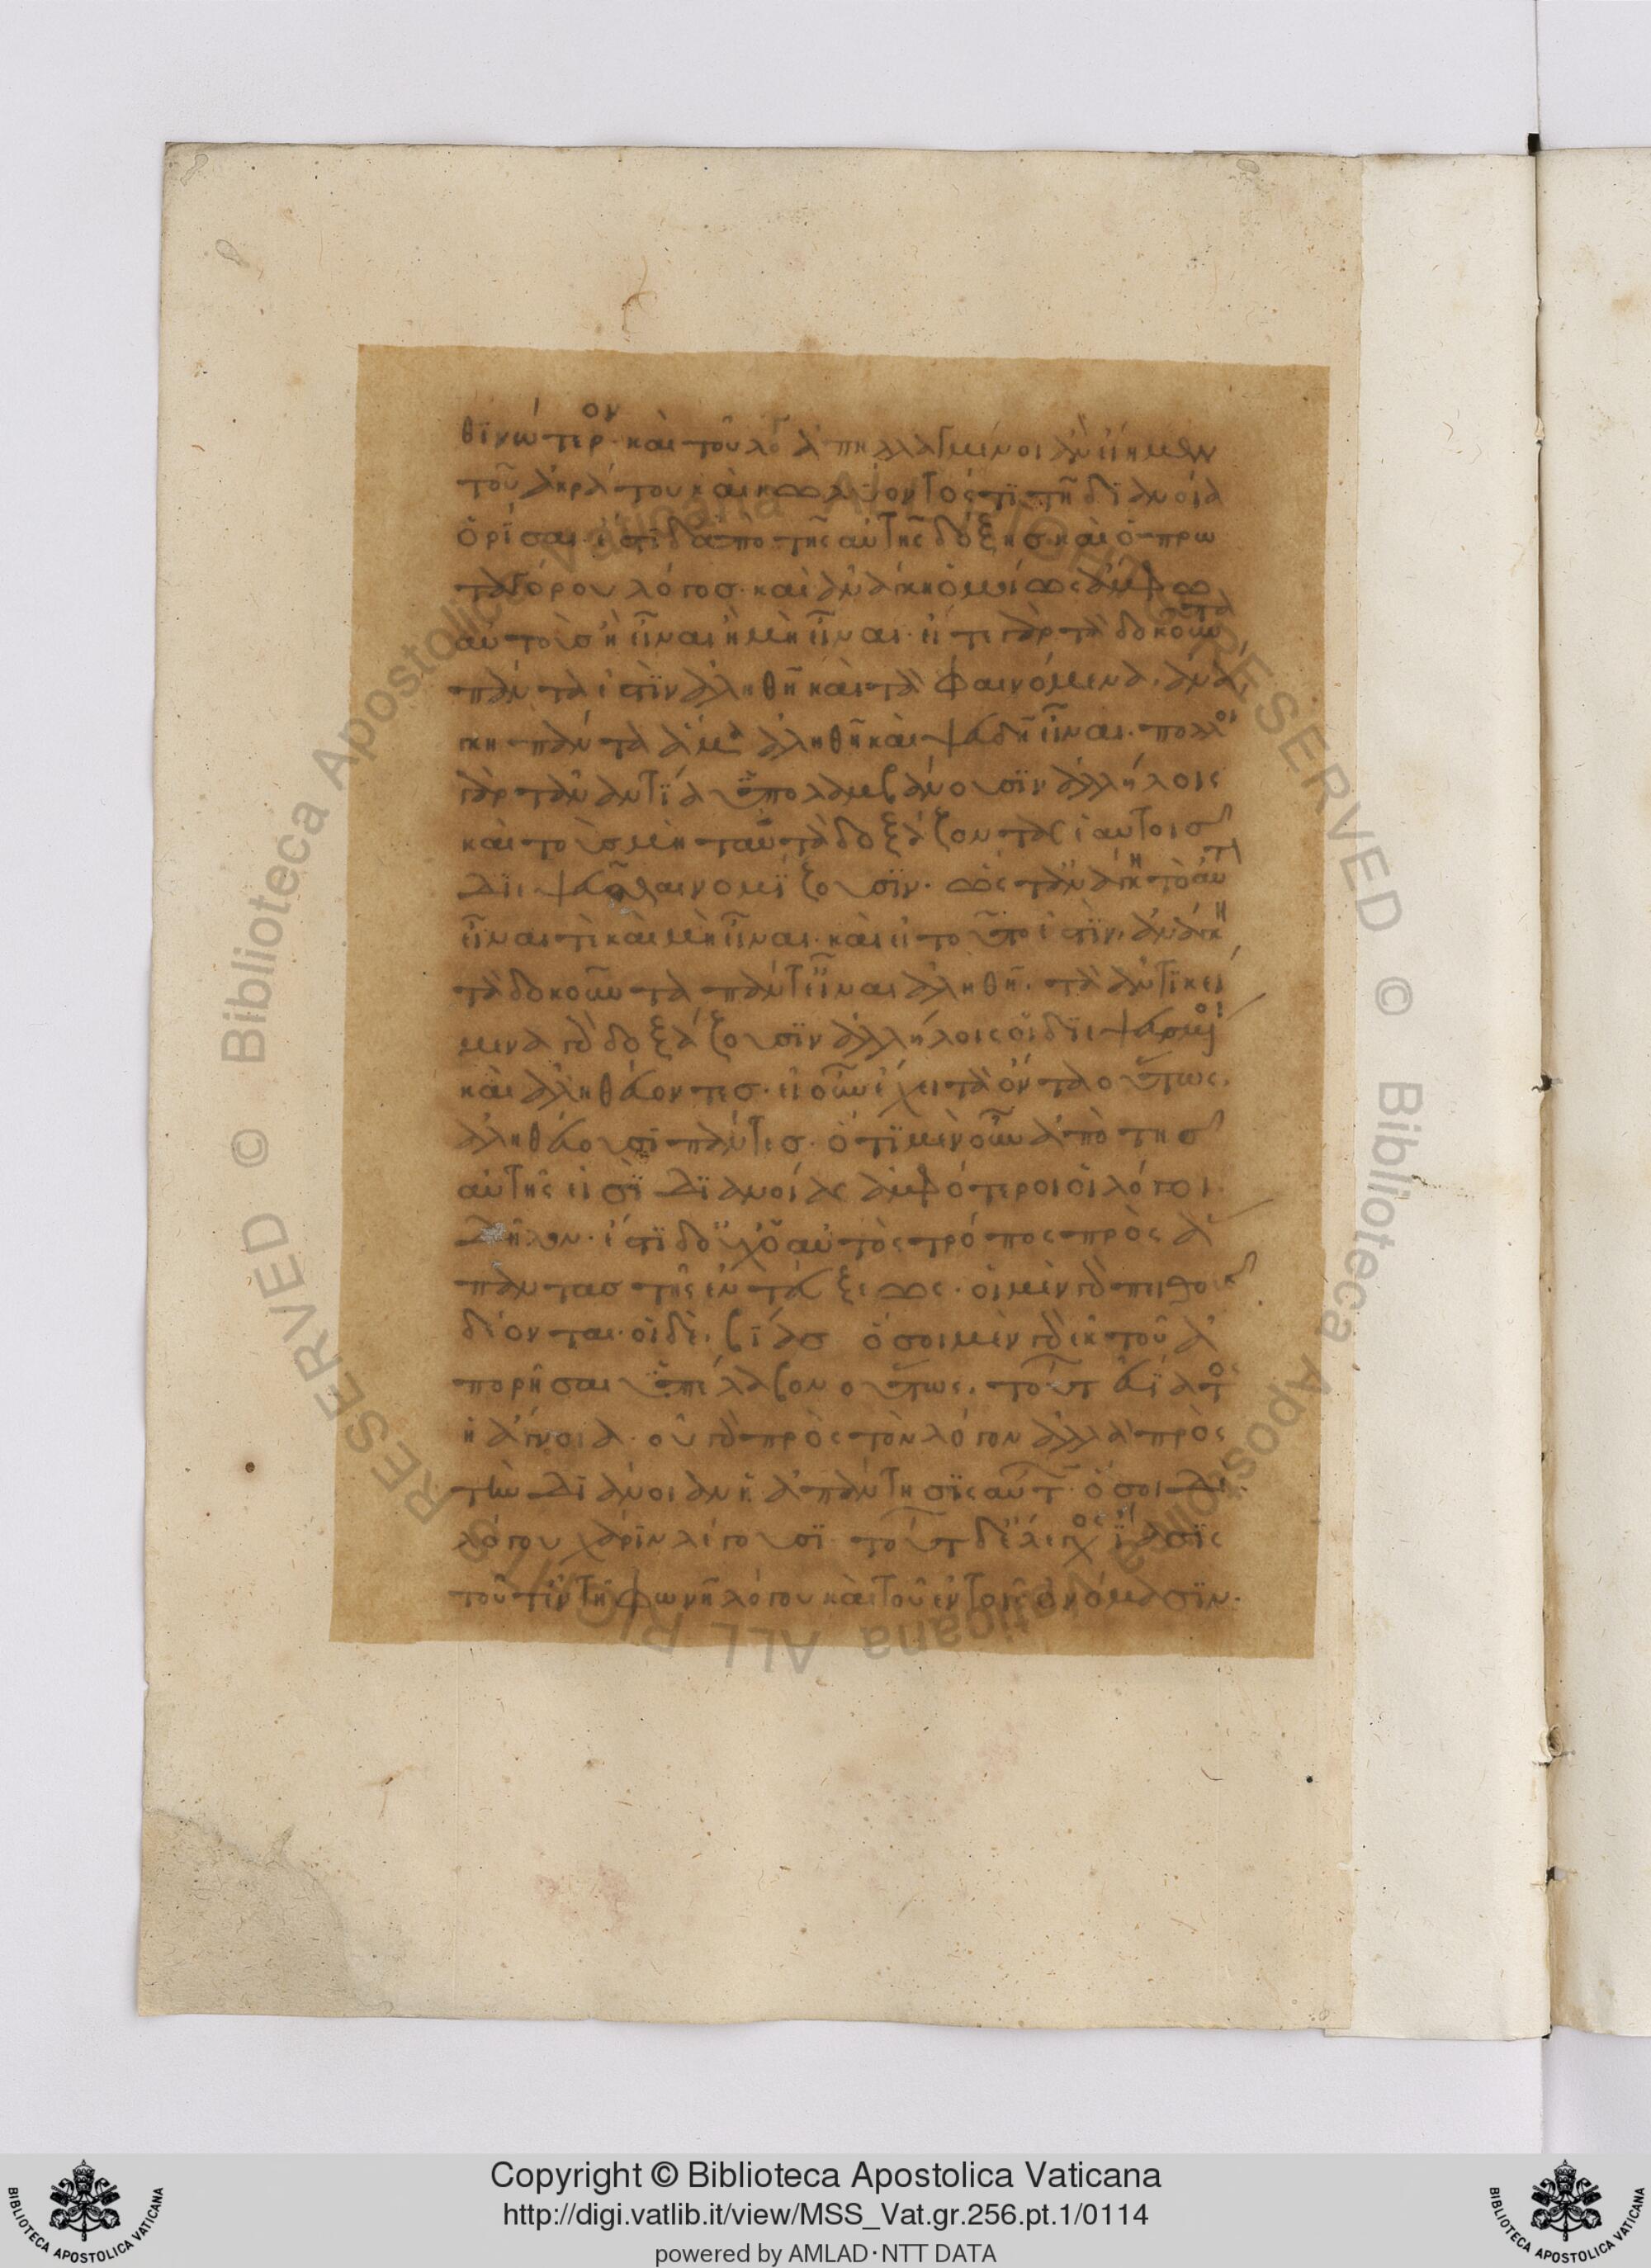 θινώτερον· καὶ τοῦ λόγου ἀπηλλαγμένοι ἂν εἴημεν
τοῦ ἀκράτου καὶ κωλύοντός τι τῇ διανοία
ὁρίσαι· ἔστι δ' ἀπὸ τῆς αὐτῆς δόξης καὶ ὁ πρω
ταγόρου λόγος· καὶ ἀνάγκη ὁμοίως ἄμφω
αὐτοὺς ἢ εἶναι ἢ μὴ εἶναι· εἴτε γὰρ τὰ δοκοῦντα
πάντα ἐστὶν ἀληθῆ καὶ τὰ φαινόμενα, ἀνά
γκη πάντα ἅμα ἀληθῆ καὶ ψευδῆ εἶναι· πολλοὶ
γὰρ τἀναντία ὑπολαμβάνουσιν ἀλλήλοις
καὶ τοὺς μὴ ταὐτὰ δοξάζοντας ἑαυτοῖς
διεψεῦσθαι νομίζουσιν· ὥστ' ἀνάγκη τὸ αὐτὸ
εἶναι τὲ καὶ μὴ εἶναι· καὶ εἰ τοῦτο ἐστὶν, ἀνάγκη
τὰ δοκοῦντα πάντ' εἶναι ἀληθῆ· τὰ ἀντικεί
μενα γὰρ δοξάζουσιν ἀλλήλοις οἱ διεψευσμένοι
καὶ ἀληθεύοντες· εἰ οὖν ἔχει τὰ ὄντα οὕτως,
ἀληθεύουσι πάντες· ὅτι μὲν οὖν ἀπὸ τῆς
αὐτῆς εἰσὶ διανοίας ἀμφότεροι οἱ λόγοι
δῆλον· ἔστι δ' οὐχ ὁ αὐτὸς τρόπος πρὸς ἅ
παντας τῆς ἐντεύξεως· οἱ μὲν γὰρ πειθοῦς
δέονται· οἱ δὲ, βίας ὅσοι μὲν γὰρ ἐκ τοῦ ἀ
πορῆσαι ὑπέλαβον οὕτως, τούτων εὐίατος
ἡ ἄγνοια· οὐ γὰρ πρὸς τὸν λόγον ἀλλὰ πρὸς
τὴν διάνοιαν ἡ ἀπάντησις αὐτῶν· ὅσοι δὲ
λόγου χάριν λέγουσι τούτων δ' ἔλεγχος ἴασις
τοῦ τ' ἐν τῇ φωνῇ λόγου καὶ τοῦ ἐν τοῖς ὀνόμασιν·